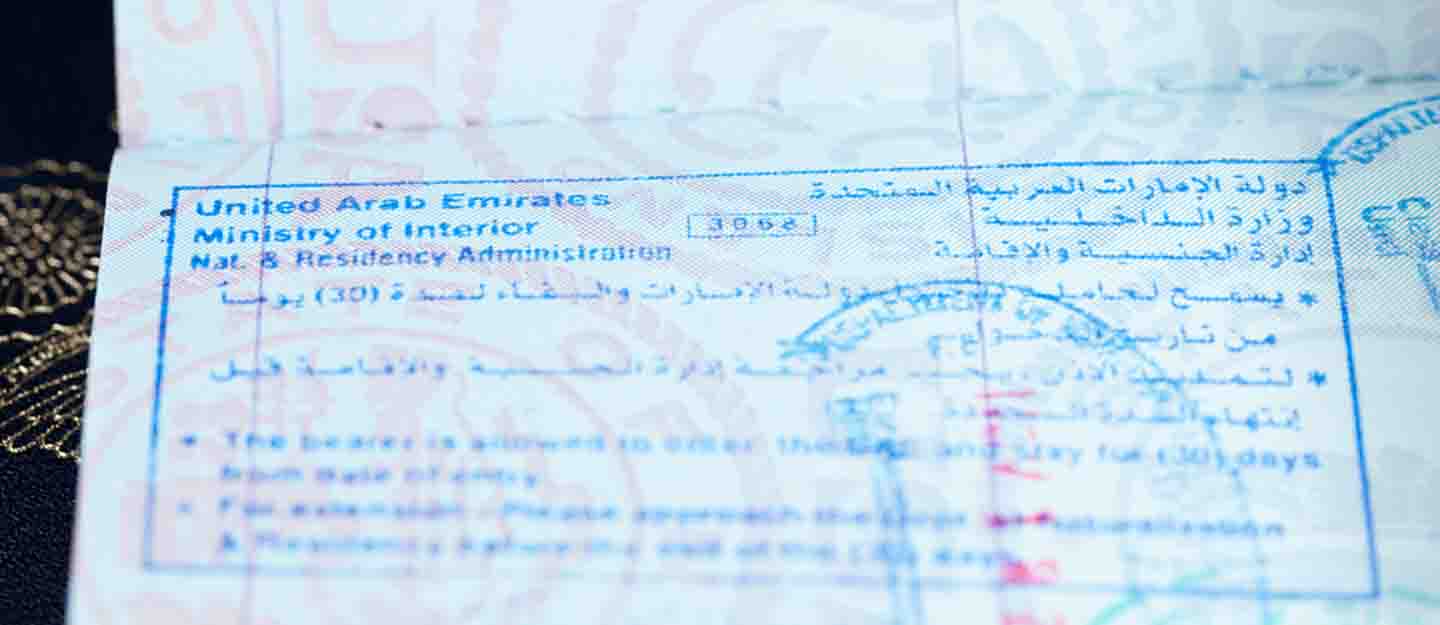 United Arab Emirates
Ministry of Interior
Nat. & Residency Administration
3068
دولة الإمارات العربية المتحدة
وزارة الداخلية
إدارة الجنسية والاقامة
* يسمح لحامل دولة الإمارات والبقاء لمدة (30) يوماً
من تاريخ
* لتمديد الاذن يجب مراجعة إدارة الجنسية والاقامة قبل
إنتهاء المدة المحددة
* The bearer is allowed to enter the and stay for (30) days
from date of entry
* For extension - Please approach the Naturalization
& Residency before the end of the days